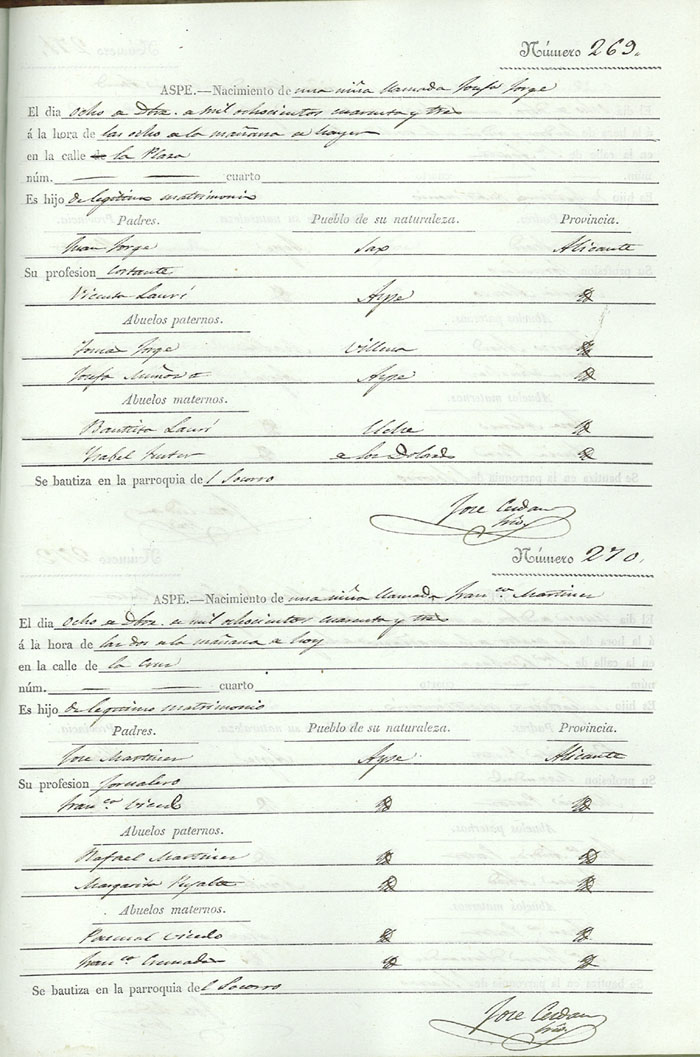 Número 269.
ASPE.—Nacimiento de una niña llamada Josefa Jorge
El dia ocho de Dbre. de mil ochocientos cuarenta y tres
á la hora de las ocho de la mañana de hayer
en la calle de la Plaza
núm. — — cuarto
Es hijo de legitimo matrimonio
Padres. Pueblo de su naturaleza. Provincia.
Juan Jorge Sax Alicante
Su profesion
Vicenta Aspe
Abuelos paternos.
Tomas Jorge Villena
Josefa Aspe
Abuelos maternos.
Bautista Elche
Ysabel
Se bautiza en la parroquia del Socorro
Jose Cerdan
Número 270.
ASPE.—Nacimiento de una niña llamada Franca Martinez
El dia ocho de Dbre. de mil ochocientos cuarenta y tres
á la hora de las dos de la mañana de hoy
en la calle de la Cruz
núm. — — cuarto
Es hijo de legitimo matrimonio
Padres. Pueblo de su naturaleza. Provincia.
Jose Martinez Aspe Alicante
Su profesion Jornalero
Franca
Abuelos paternos.
Rafael Martinez
Margarita
Abuelos maternos.
Pascual Vicedo
Franca
Se bautiza en la parroquia del Socorro
Jose Cerdan